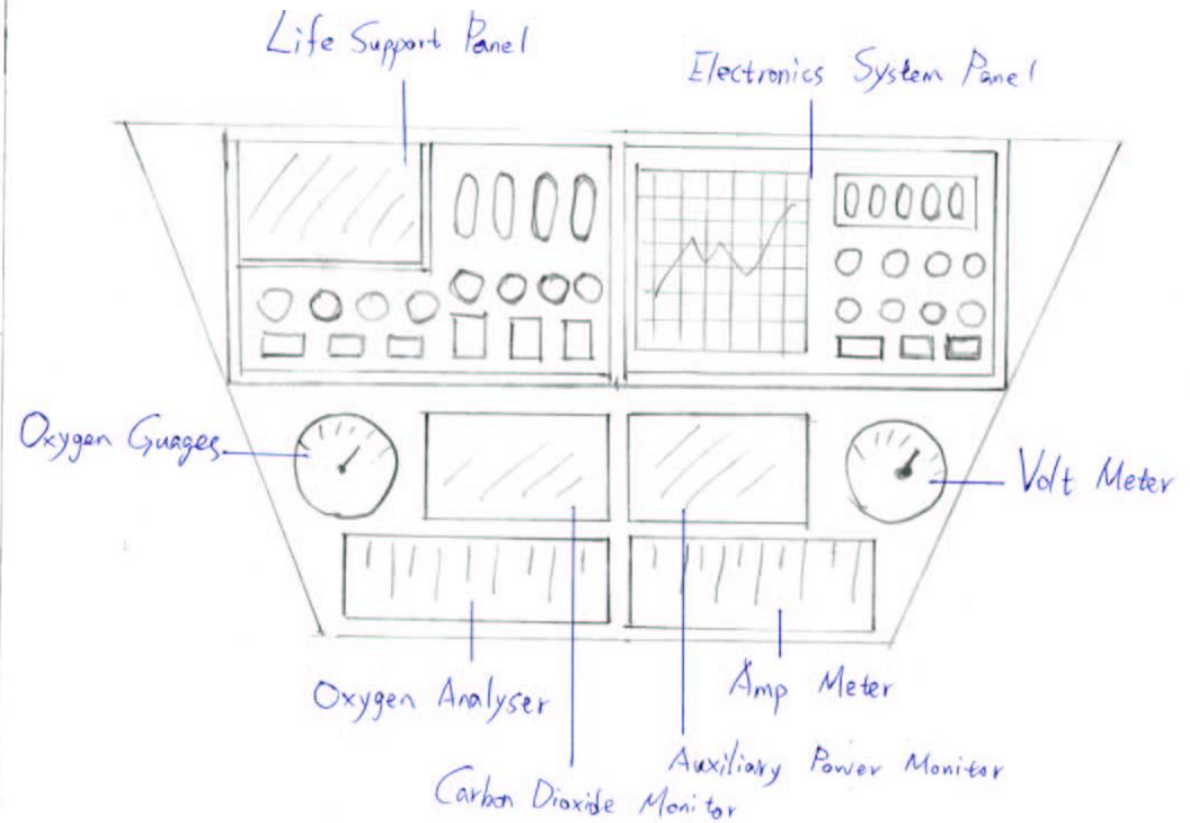 Life Support Panel
Electronics System Panel
Oxygen Guages
Volt Meter
Oxygen Analyser
Amp Meter
Auxiliary Power Monitor
Carbon Dioxide Monitor